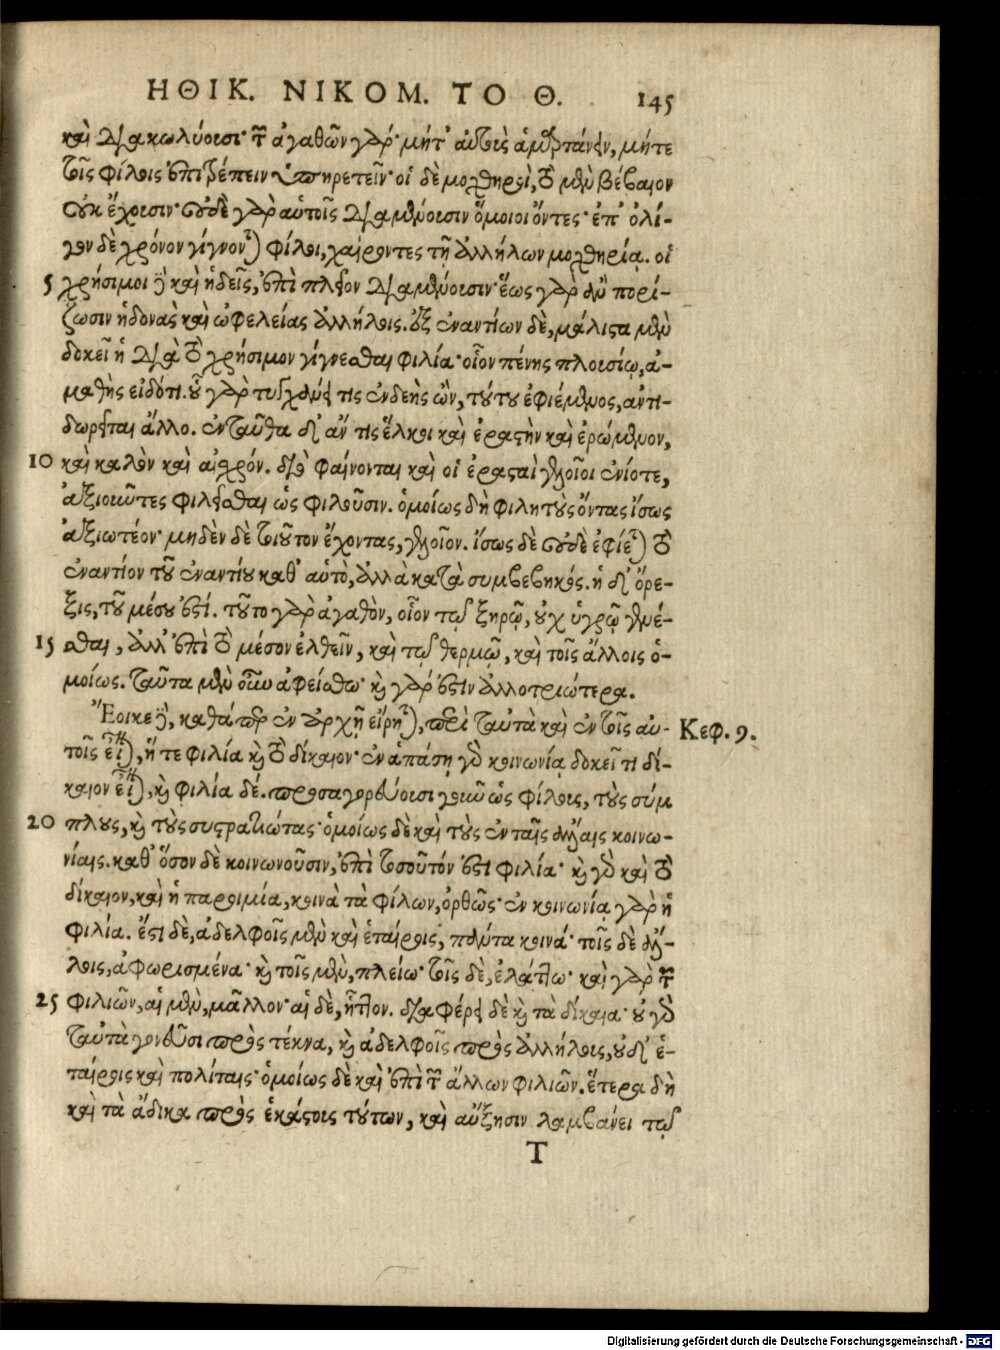 ΗΘΙΚ. ΝΙΚΟΜ. ΤΟ Θ. 145
καὶ διακωλύουσι· τῶν ἀγαθῶν γὰρ· μήτ' αὐτοὺς ἁμαρτάνειν, μήτε
τοῖς φίλοις ἐπιτρέπειν ὑπηρετεῖν· οἱ δὲ μοχθηροὶ, τὸ μὲν βέβαιον
οὐκ ἔχουσιν· οὐδὲ γὰρ αὑτοῖς διαμένουσιν ὅμοιοι ὄντες· ἐπ' ὀλί-
γον δὲ χρόνον γίγνονται φίλοι, χαίροντες τῇ ἀλλήλων μοχθηρίᾳ. οἱ
5 χρήσιμοι δὲ καὶ ἡδεῖς, ἐπὶ πλεῖον διαμένουσιν· ἕως γὰρ ἂν πορί-
ζωσιν ἡδονὰς καὶ ὠφελείας ἀλλήλοις. ἐξ ἐναντίων δὲ, μάλιστα μὲν
δοκεῖ ἡ διὰ τὸ χρήσιμον γίγνεσθαι φιλία· οἷον πένης πλουσίῳ, ἀ-
μαθὴς εἰδότι. οὗ γὰρ τυγχάνει τις ἐνδεὴς ὢν, τούτου ἐφιέμενος, ἀντι-
δωρεῖται ἄλλο. ἐνταῦθα δ' ἄν τις ἕλκοι καὶ ἐραστὴν καὶ ἐρώμενον,
10 καὶ καλὸν καὶ αἰσχρόν. διὸ φαίνονται καὶ οἱ ἐρασταὶ γελοῖοι ἐνίοτε,
ἀξιοῦντες φιλεῖσθαι ὡς φιλοῦσιν. ὁμοίως δὴ φιλητοὺς ὄντας ἴσως
ἀξιωτέον· μηδὲν δὲ τοιοῦτον ἔχοντας, γελοῖον. ἴσως δὲ οὐδὲ ἐφίεται τὸ
ἐναντίον τοῦ ἐναντίου καθ' αὑτὸ, ἀλλὰ κατὰ συμβεβηκός. ἡ δ' ὄρε-
ξις, τοῦ μέσου ἐστί. τοῦτο γὰρ ἀγαθὸν, οἷον τῷ ξηρῷ, οὐχ ὑγρῷ γενέ-
15 σθαι, ἀλλ' ἐπὶ τὸ μέσον ἐλθεῖν, καὶ τῷ θερμῷ, καὶ τοῖς ἄλλοις ὁ-
μοίως. ταῦτα μὲν οὖν ἀφείσθω· καὶ γάρ ἐστιν ἀλλοτριώτερα.
Ἔοικε δὲ, καθάπερ ἐν ἀρχῇ εἴρηται, περὶ ταὐτὰ καὶ ἐν τοῖς αὐ- Κεφ. 9.
τοῖς εἶναι, ἥ τε φιλία καὶ τὸ δίκαιον· ἐν ἁπάσῃ γὰρ κοινωνίᾳ δοκεῖ τι δί-
καιον εἶναι, καὶ φιλία δέ. προσαγορεύουσι γοῦν ὡς φίλους, τοὺς σύμ
20 πλους, καὶ τοὺς συστρατιώτας· ὁμοίως δὲ καὶ τοὺς ἐν ταῖς ἄλλαις κοινω-
νίαις. καθ' ὅσον δὲ κοινωνοῦσιν, ἐπὶ τοσοῦτόν ἐστι φιλία· καὶ γὰρ καὶ τὸ
δίκαιον, καὶ ἡ παροιμία, κοινὰ τὰ φίλων, ὀρθῶς· ἐν κοινωνίᾳ γὰρ ἡ
φιλία. ἔστι δὲ, ἀδελφοῖς μὲν καὶ ἑταίροις, πάντα κοινά· τοῖς δὲ ἄλ-
λοις, ἀφωρισμένα· καὶ τοῖς μὲν, πλείω· τοῖς δὲ, ἐλάττω· καὶ γὰρ τῶν
25 φιλιῶν, αἱ μὲν, μᾶλλον· αἱ δὲ, ἧττον. διαφέρει δὲ καὶ τὰ δίκαια· οὐ γὰρ
ταὐτὰ γονεῦσι πρὸς τέκνα, καὶ ἀδελφοῖς πρὸς ἀλλήλους, οὐδ' ἑ-
ταίροις καὶ πολίταις· ὁμοίως δὲ καὶ ἐπὶ τῶν ἄλλων φιλιῶν. ἕτερα δὴ
καὶ τὰ ἄδικα πρὸς ἑκάστους τούτων, καὶ αὔξησιν λαμβάνει τῷ
T
Digitalisierung gefördert durch die Deutsche Forschungsgemeinschaft - DFG